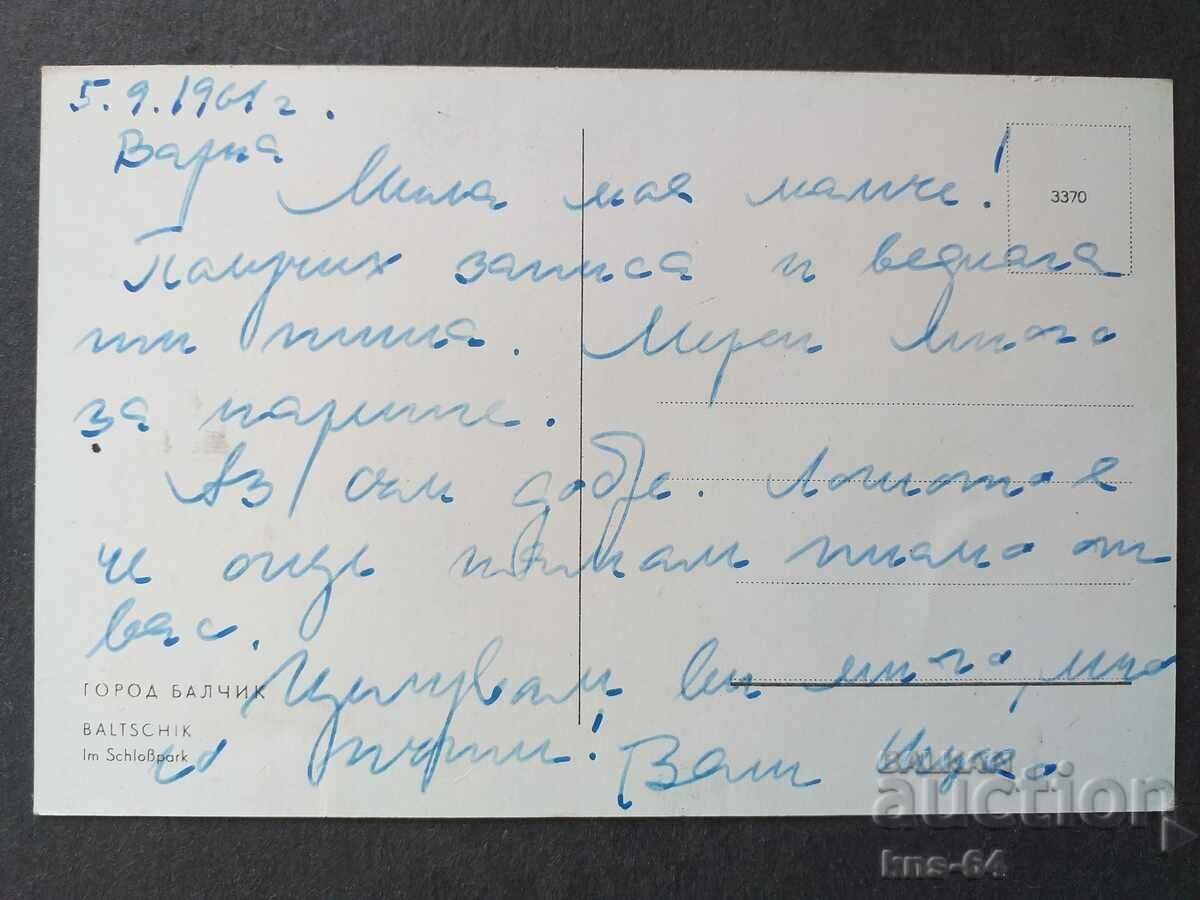 5.9.1961 г.
Варна
Мила моя мамче!
3370
Получих записа и веднага
ти пиша. Мерси много
за парите.
Аз съм добре. Лошото е
че още нямам писмо от
вас.
Целувам ви много, мно
го пъти! Ваш
ГОРОД БАЛЧИК
BALTSCHIK
Im Schloßpark
BALKAN
auction
kns-64